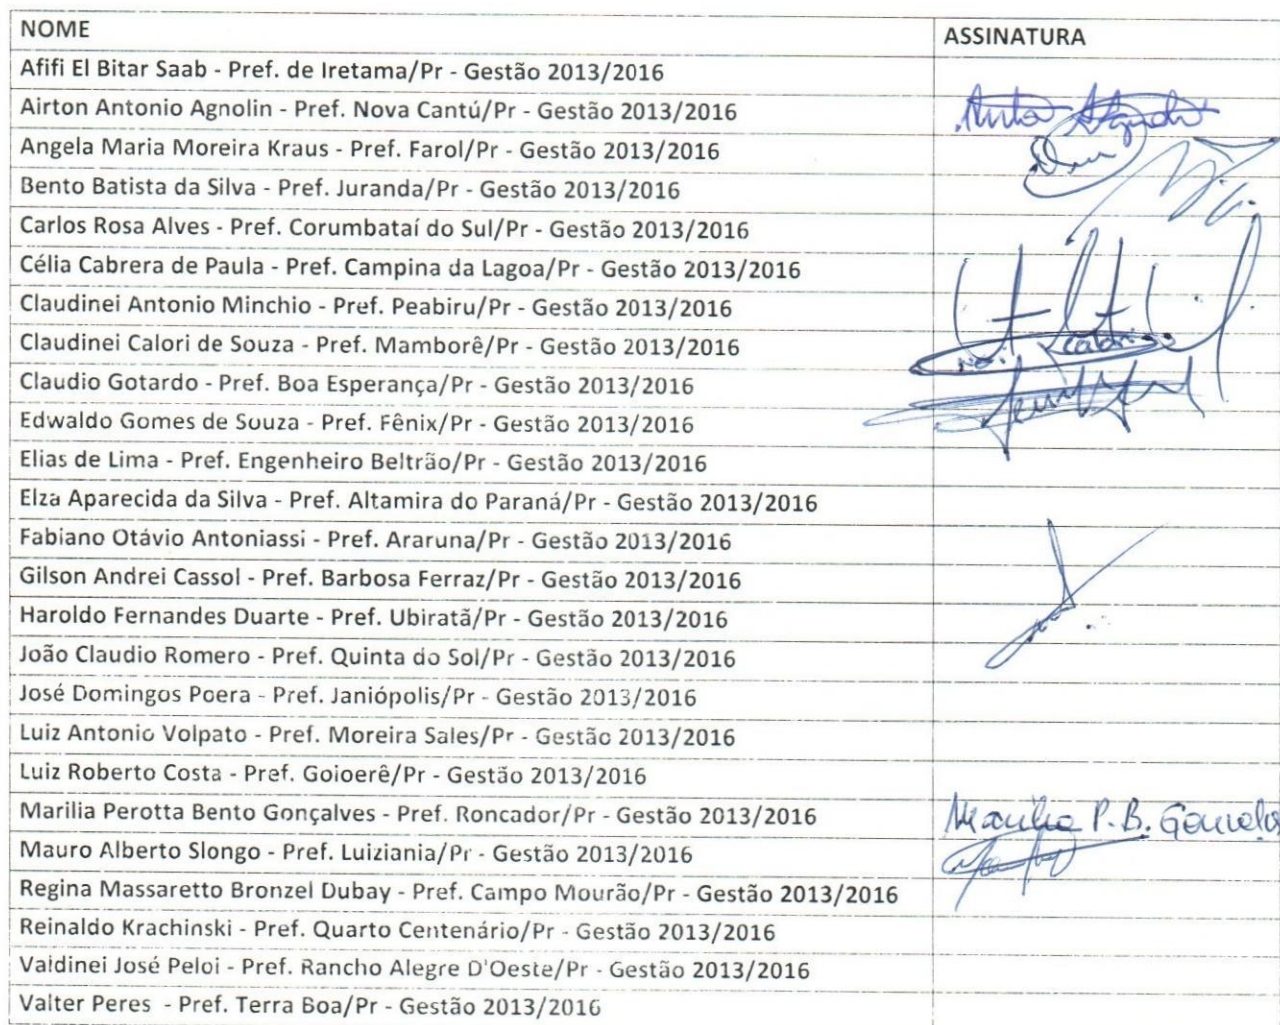 NOME ASSINATURA
Afifi El Bitar Saab - Pref. de Iretama/Pr - Gestão 2013/2016
Airton Antonio Agnolin - Pref. Nova Cantú/Pr - Gestão 2013/2016
Angela Maria Moreira Kraus - Pref. Farol/Pr - Gestão 2013/2016
Bento Batista da Silva - Pref. Juranda/Pr - Gestão 2013/2016
Carlos Rosa Alves - Pref. Corumbataí do Sul/Pr - Gestão 2013/2016
Célia Cabrera de Paula - Pref. Campina da Lagoa/Pr - Gestão 2013/2016
Claudinei Antonio Minchio - Pref. Peabiru/Pr - Gestão 2013/2016
Claudinei Calori de Souza - Pref. Mamborê/Pr - Gestão 2013/2016
Claudio Gotardo - Pref. Boa Esperança/Pr - Gestão 2013/2016
Edwaldo Gomes de Souza - Pref. Fênix/Pr - Gestão 2013/2016
Elias de Lima - Pref. Engenheiro Beltrão/Pr - Gestão 2013/2016
Elza Aparecida da Silva - Pref. Altamira do Paraná/Pr - Gestão 2013/2016
Fabiano Otávio Antoniassi - Pref. Araruna/Pr - Gestão 2013/2016
Gilson Andrei Cassol - Pref. Barbosa Ferraz/Pr - Gestão 2013/2016
Haroldo Fernandes Duarte - Pref. Ubiratã/Pr - Gestão 2013/2016
João Claudio Romero - Pref. Quinta do Sol/Pr - Gestão 2013/2016
José Domingos Poera - Pref. Janiópolis/Pr - Gestão 2013/2016
Luiz Antonio Volpato - Pref. Moreira Sales/Pr - Gestão 2013/2016
Luiz Roberto Costa - Pref. Goioerê/Pr - Gestão 2013/2016
Marilia Perotta Bento Gonçalves - Pref. Roncador/Pr - Gestão 2013/2016 Marilia P. B. Goncalves
Mauro Alberto Slongo - Pref. Luiziania/Pr - Gestão 2013/2016
Regina Massaretto Bronzel Dubay - Pref. Campo Mourão/Pr - Gestão 2013/2016
Reinaldo Krachinski - Pref. Quarto Centenário/Pr - Gestão 2013/2016
Valdinei José Peloi - Pref. Rancho Alegre D'Oeste/Pr - Gestão 2013/2016
Valter Peres - Pref. Terra Boa/Pr - Gestão 2013/2016